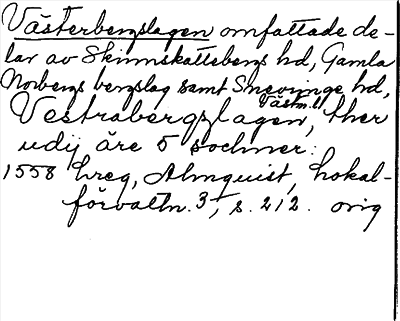 Västerbergslagen omfattade de-
lar av Skinnskattebergs hd, Gamla
Norbergs bergslag samt Snevringe hd,
Västm.l.
Vestrabergzlagen, ther
udij äre 5 sochner:
1558 hreg, Almquist, Lokal-
förvaltn. 3, s. 212. orig